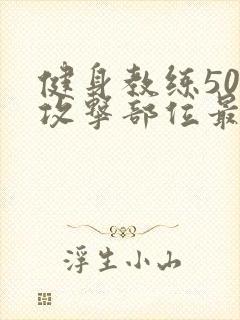 健身教练50
攻撃部位最
浮生小山